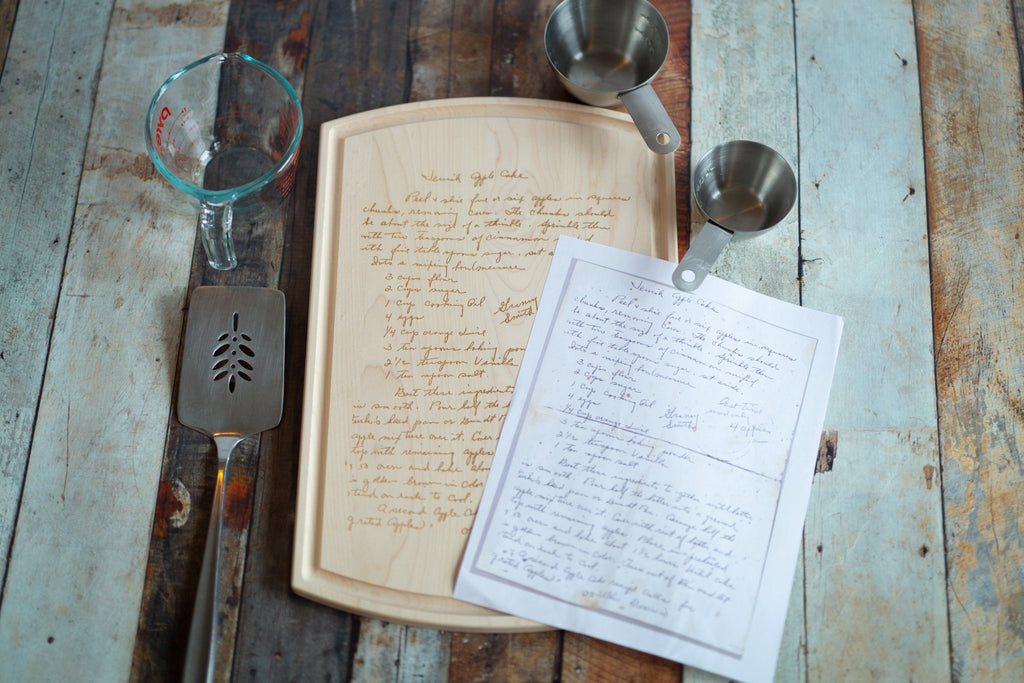 Jewish Apple Cake
Peel & slice five or six apples in squares
chunks, removing cores. The chunks should
be about the size of a thimble. Sprinkle them
with two teaspoons of cinnamon
with five table spoons sugar. set a
Into a mixing bowl measure
3 cups flour
2 cups sugar
1 cup cooking Oil
4 eggs
Granny
Smith
1/4 cup orange juice
3 tea spoons baking pow
2 1/2 teaspoon Vanilla
1 tea spoon salt
Beat these ingredients
smooth. Pour half the
pan or Bundt
apple mixture over it. Cover
top with remaining apples
oven and bake
is golden brown in color
stand on rack to Cool.
A second Apple Ca
grated Apples.
Jewish Apple Cake
Peel & slice five or six apples in squares
chunks, removing cores. The chunks should
be about the size of a thimble. Sprinkle them
with two teaspoons of cinnamon
with five table spoons sugar. set aside
Into a mixing bowl measure
3 cups flour
2 cups sugar
1 cup cooking Oil
4 eggs
Granny
Smith
4 apples
1/4 cup orange juice
3 tea spoons baking powder
2 1/2 teaspoon Vanilla
1 tea spoon salt
Beat these ingredients together until batter
is smooth. Pour half the batter into a greased
pan or Bundt Pan. Arrange half the
apple mixture over it. Cover with rest of batter, and
top with remaining apples. Place in preheated
oven and bake about 1 1/2 hours until cake
is golden brown in color. Turn out of Pan and let
stand on rack to Cool.
A second Apple Cake recipe calls for
grated Apples.